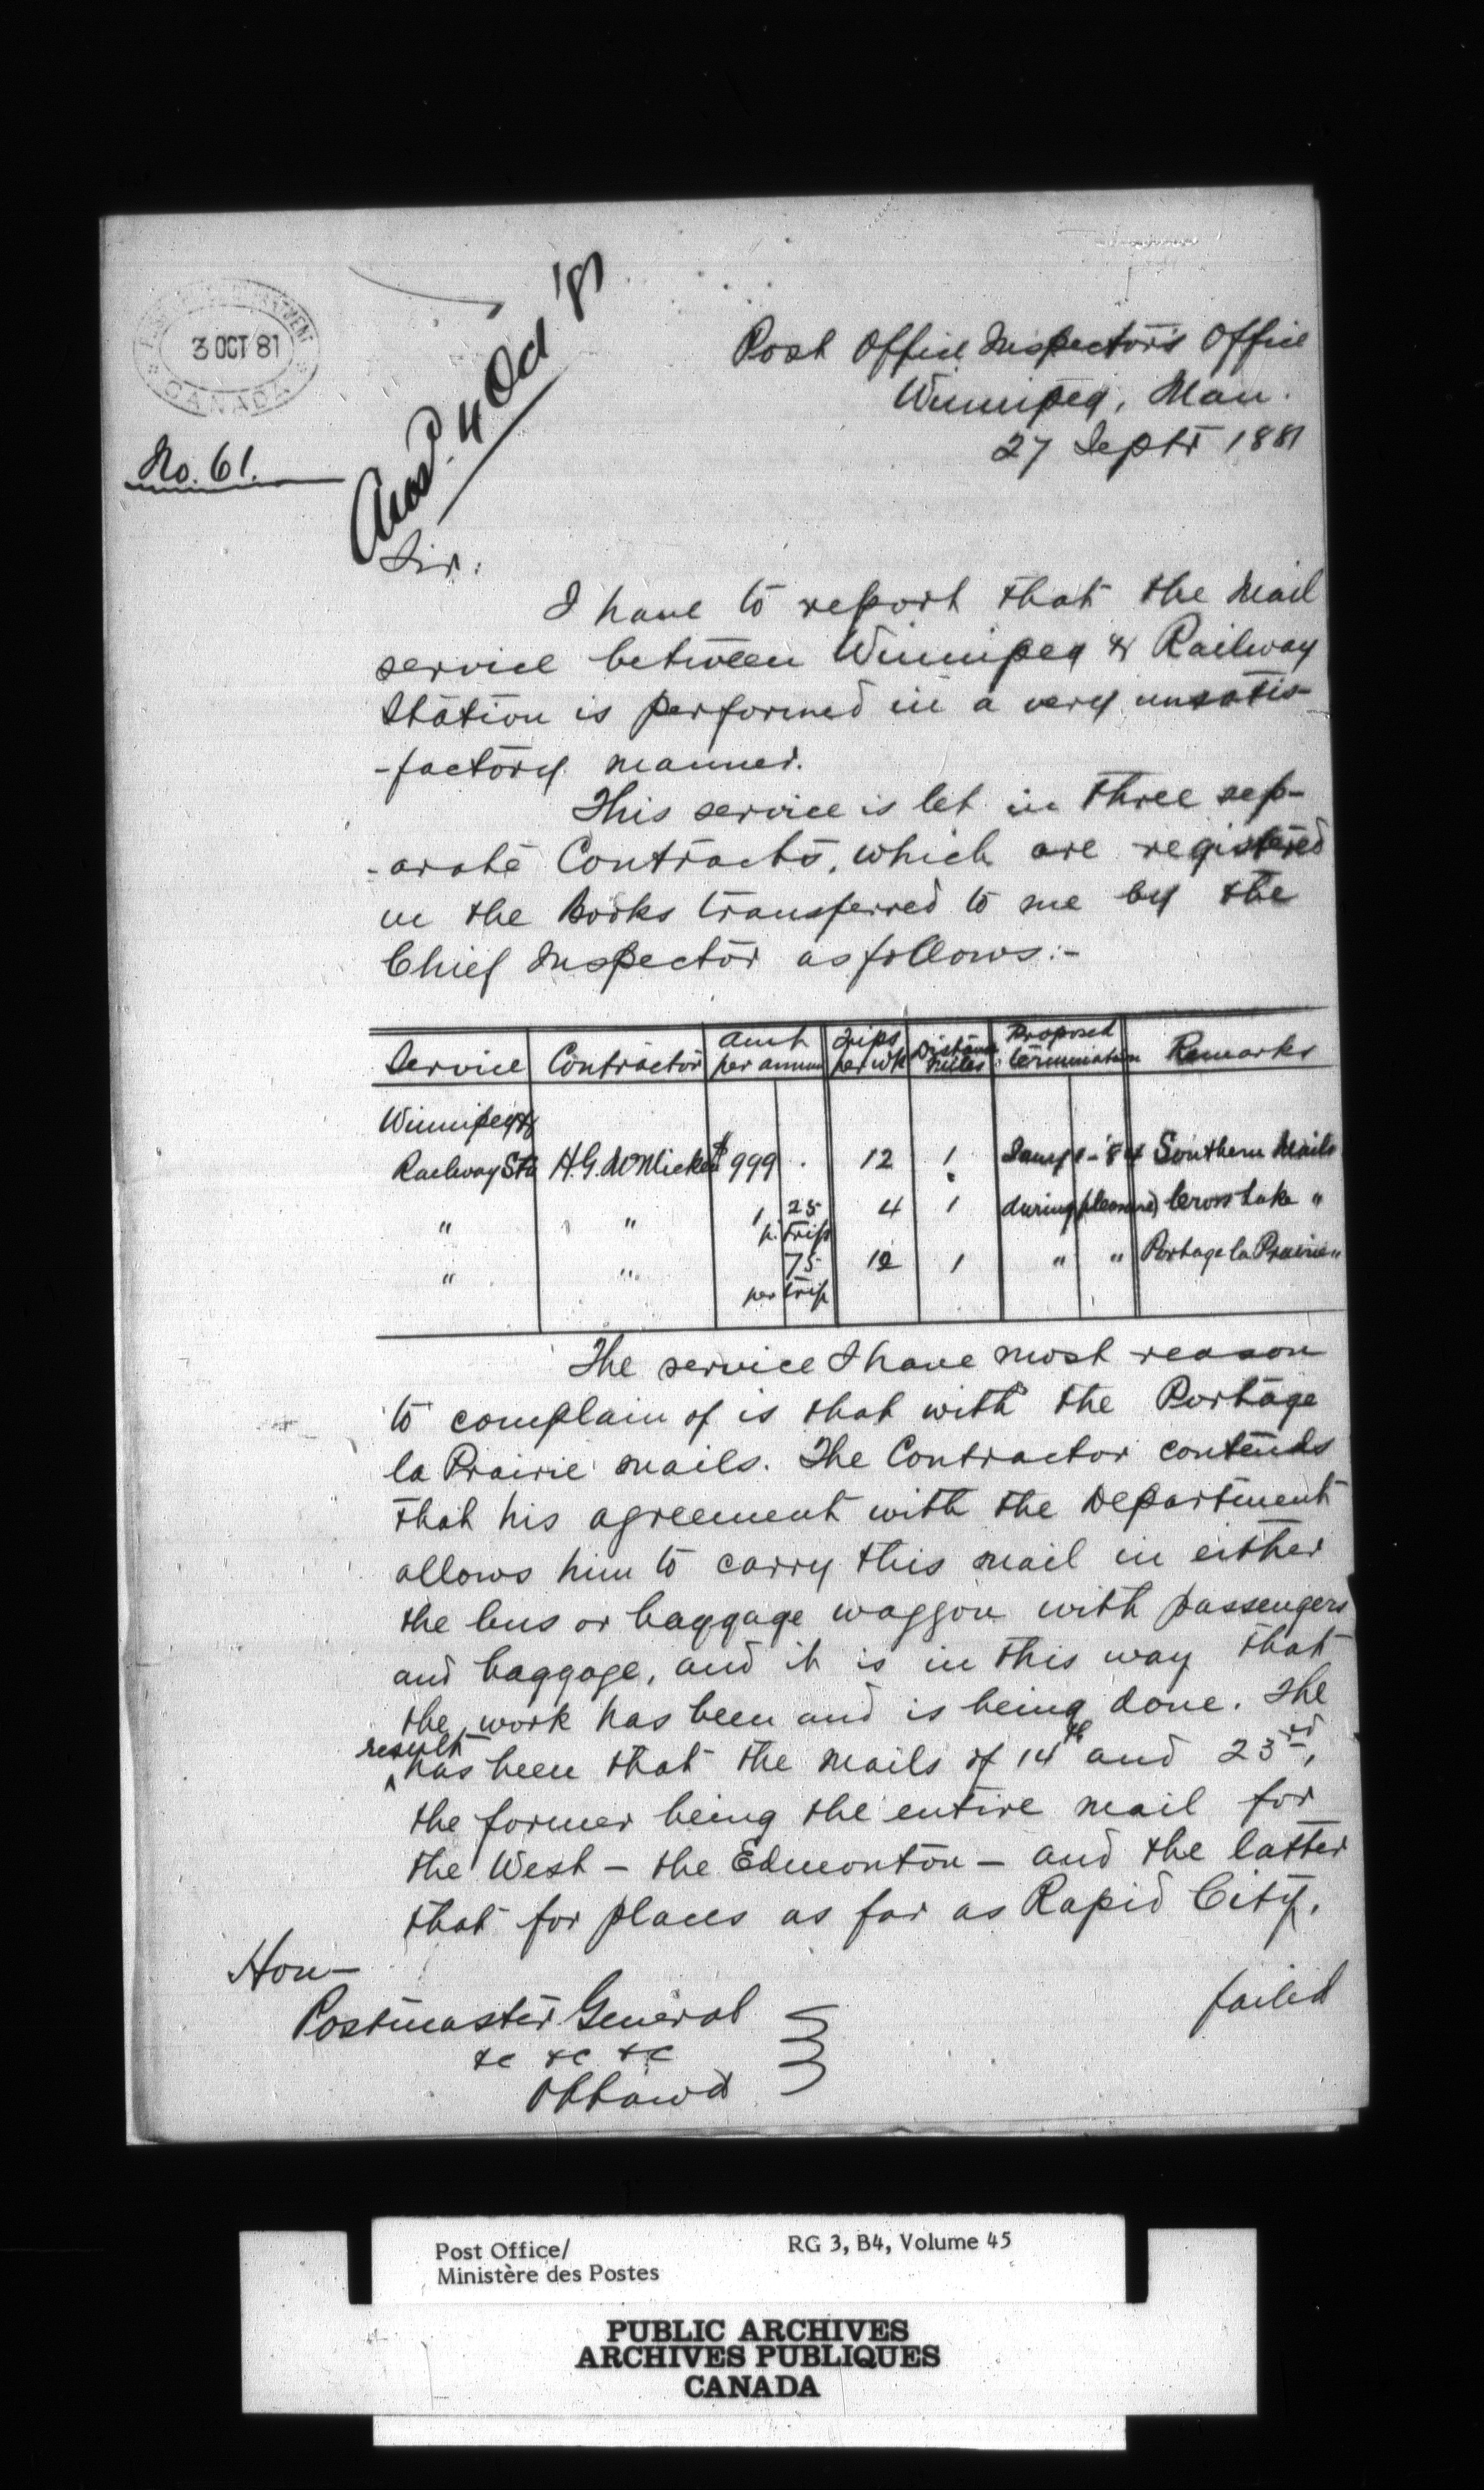 3 OCT 81
CANADA
No. 61.
Ansd. 4 Oct '81
Post Office Inspector's Office
Winnipeg, Man.
27 Septr 1881
Sir:
I have to report that the Mail
service between Winnipeg & Railway
Station is performed in a very unsatis-
-factory manner.
This service is let in three sep-
-arate Contracts, which are registered
in the books transferred to me by the
Chief Inspector as follows:-
Service Contractor Amt per annum Trips per wk Distance miles Proposed termination Remarks
Winnipeg &
Railway Stn H.G. McMicken $999 . 12 1 Jany 1 - '84 Southern Mails
" " 1 25 p. trip 4 1 during pleasure Cross Lake "
" " 75 per trip 12 1 " " Portage la Prairie "
The service I have most reason
to complain of is that with the Portage
la Prairie mails. The Contractor contends
that his agreement with the Department
allows him to carry this mail in either
the bus or baggage waggon with passengers
and baggage, and it is in this way that
the work has been and is being done. The
result has been that the mails of 14th and 23rd,
the former being the entire mail for
the West - the Edmonton - and the latter
that for places as far as Rapid City,
failed
Hon-
Postmaster General
&c &c &c
Ottawa
Post Office/
Ministère des Postes
RG 3, B4, Volume 45
PUBLIC ARCHIVES
ARCHIVES PUBLIQUES
CANADA